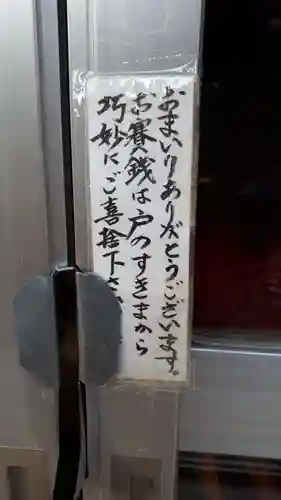 おまいりありがとうございます。
お賽銭は戸のすきまから
巧妙にご喜捨下さ